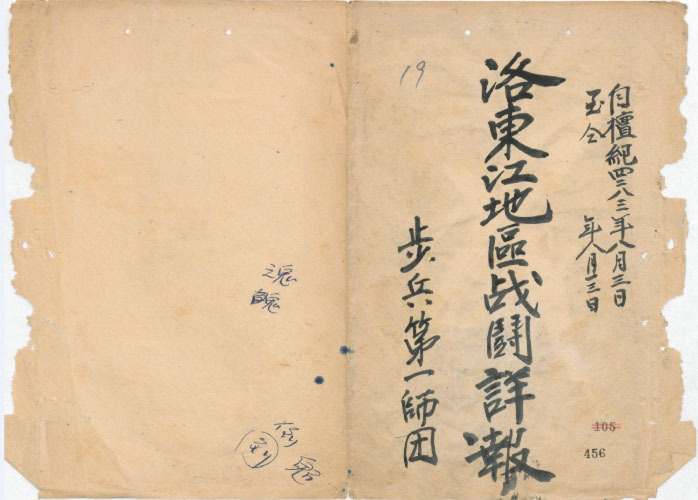 自檀紀四二八三年八月三日
至仝　年八月一三日
洛東江地區战鬪詳報
步兵第一師団
19
105
456
魂